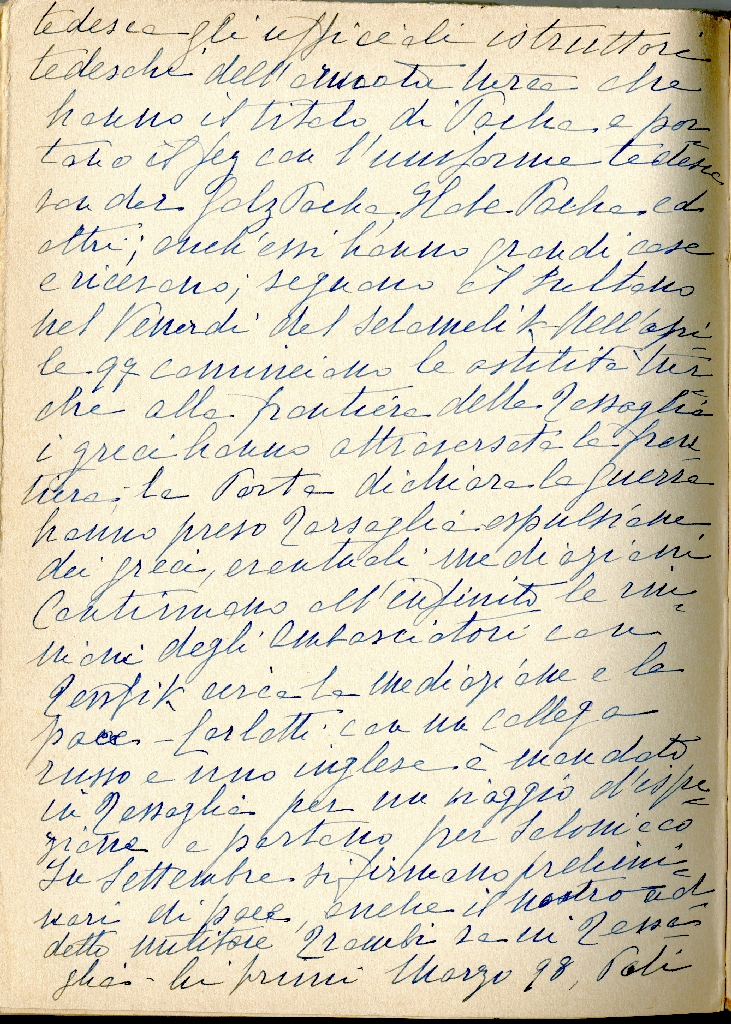 tedesca gli ufficiali istruttori
tedeschi dell'armata turca che
hanno il titolo di Pacha e por-
tano il fez con l'uniforme tedesca
von der Golz Pacha, Pacha ed
altri; anch'essi hanno grandi case
e ricevono; seguono il Sultano
nel Venerdì del Selamelik. Nell'apri-
le 97 cominciano le ostilità tur-
che alla frontiera della Tessaglia
i greci hanno attraversata la fron
tiera; la Porta dichiara la guerra
hanno preso Tessaglia espulsione
dei greci, eventuali mediazioni
Continuano all'infinito le riu-
nioni degli Ambasciatori con
Tewfik circa la mediazione e la
pace - Carlotti con un collega
russo e uno inglese è mandato
in Tessaglia per un viaggio d'ispe-
zione e partono per Salonicco
In Settembre si firmano prelimi-
nari di pace, anche il nostro ad-
detto militare Trombi va in Tessa
glia - Ai primi Marzo 98,